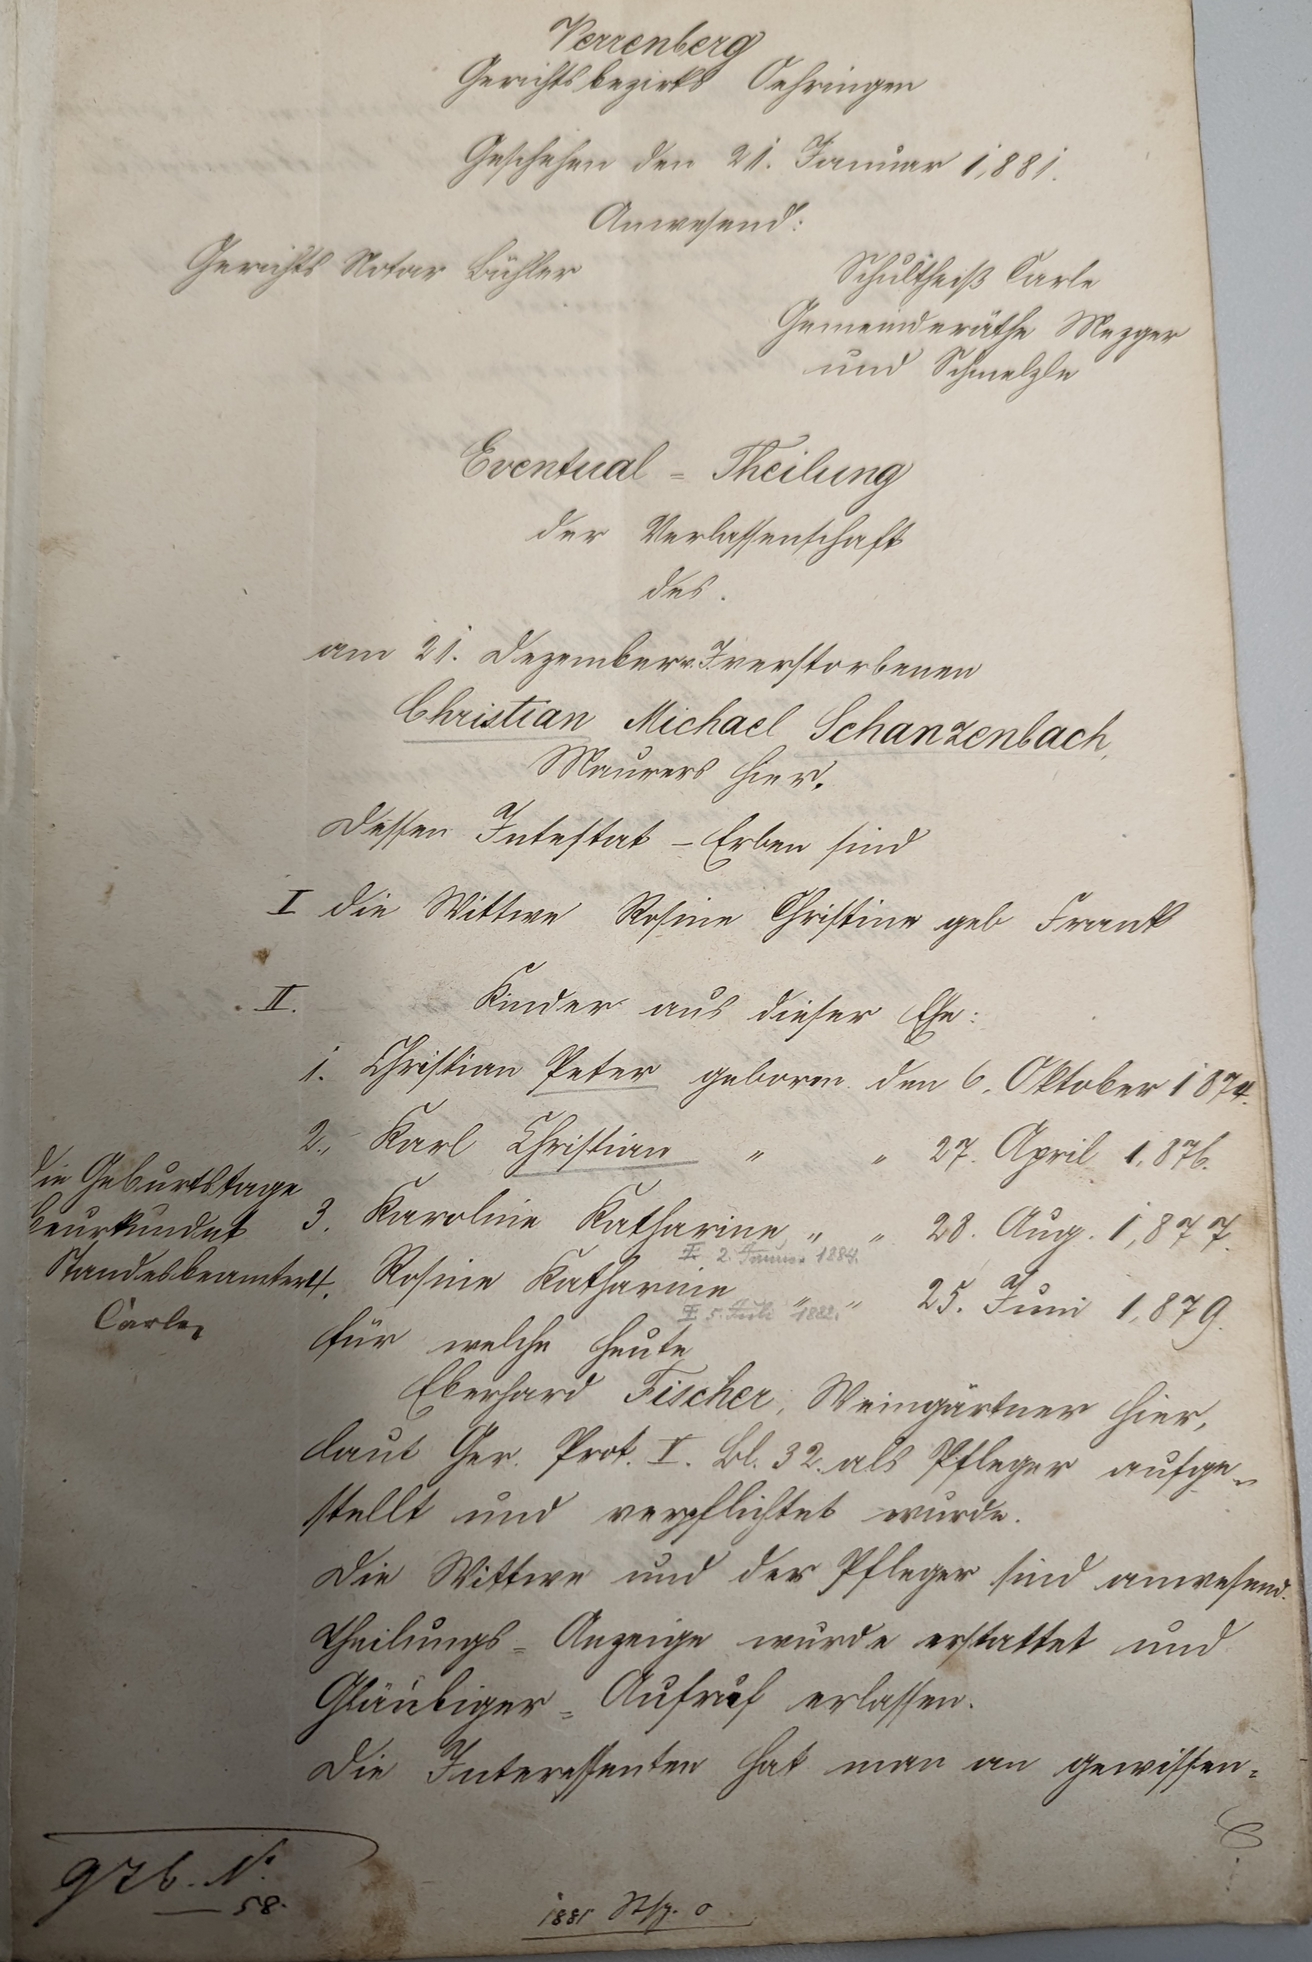 Verrenberg
Gerichtsbezirks Oehringen
Geschehen den 21. Januar 1881.
Anwesend:
Gerichts Notar Bühler
Schultheiß Carle
Gemeinderäthe Mezger
und Schmelzle
Eventual = Theilung
der Verlassenschaft
des
am 21. Dezember v. J. verstorbenen
Christian Michael Schanzenbach,
Maurers hier.
Dessen Intestat - Erben sind
I die Wittwe Rosine Christine geb Frank
II. Kinder aus dieser Ehe:
1. Christian Peter geboren den 6. Oktober 1874.
2., Karl Christian " " 27. April 1876.
3. Karoline Katharine " " 28. Aug. 1877.
2. Januar 1884.
4. Rosine Katharine " " 25. Juni 1879.
5. Juli 1882.
die Geburtstage
beurkundet
Standesbeamter
Carle
für welche heute
Eberhard Fischer, Weingärtner hier,
laut Ger. Prot. I. Bl. 32. als Pfleger aufge-
stellt und verpflichtet wurde.
Die Wittwe und der Pfleger sind anwesend.
Theilungs = Anzeige wurde erstattet und
Gläubiger = Aufruf erlassen.
Die Interessenten hat man an gewissen=
N°
58.
1881 o